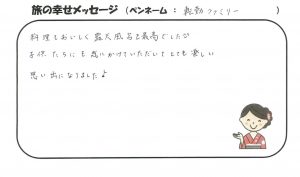 旅の幸せメッセージ (ペンネーム : 転勤ファミリー )
料理もおいしく露天風呂も最高でしたが
子供たちにも気にかけていただいてとても楽しい
思い出になりました♪